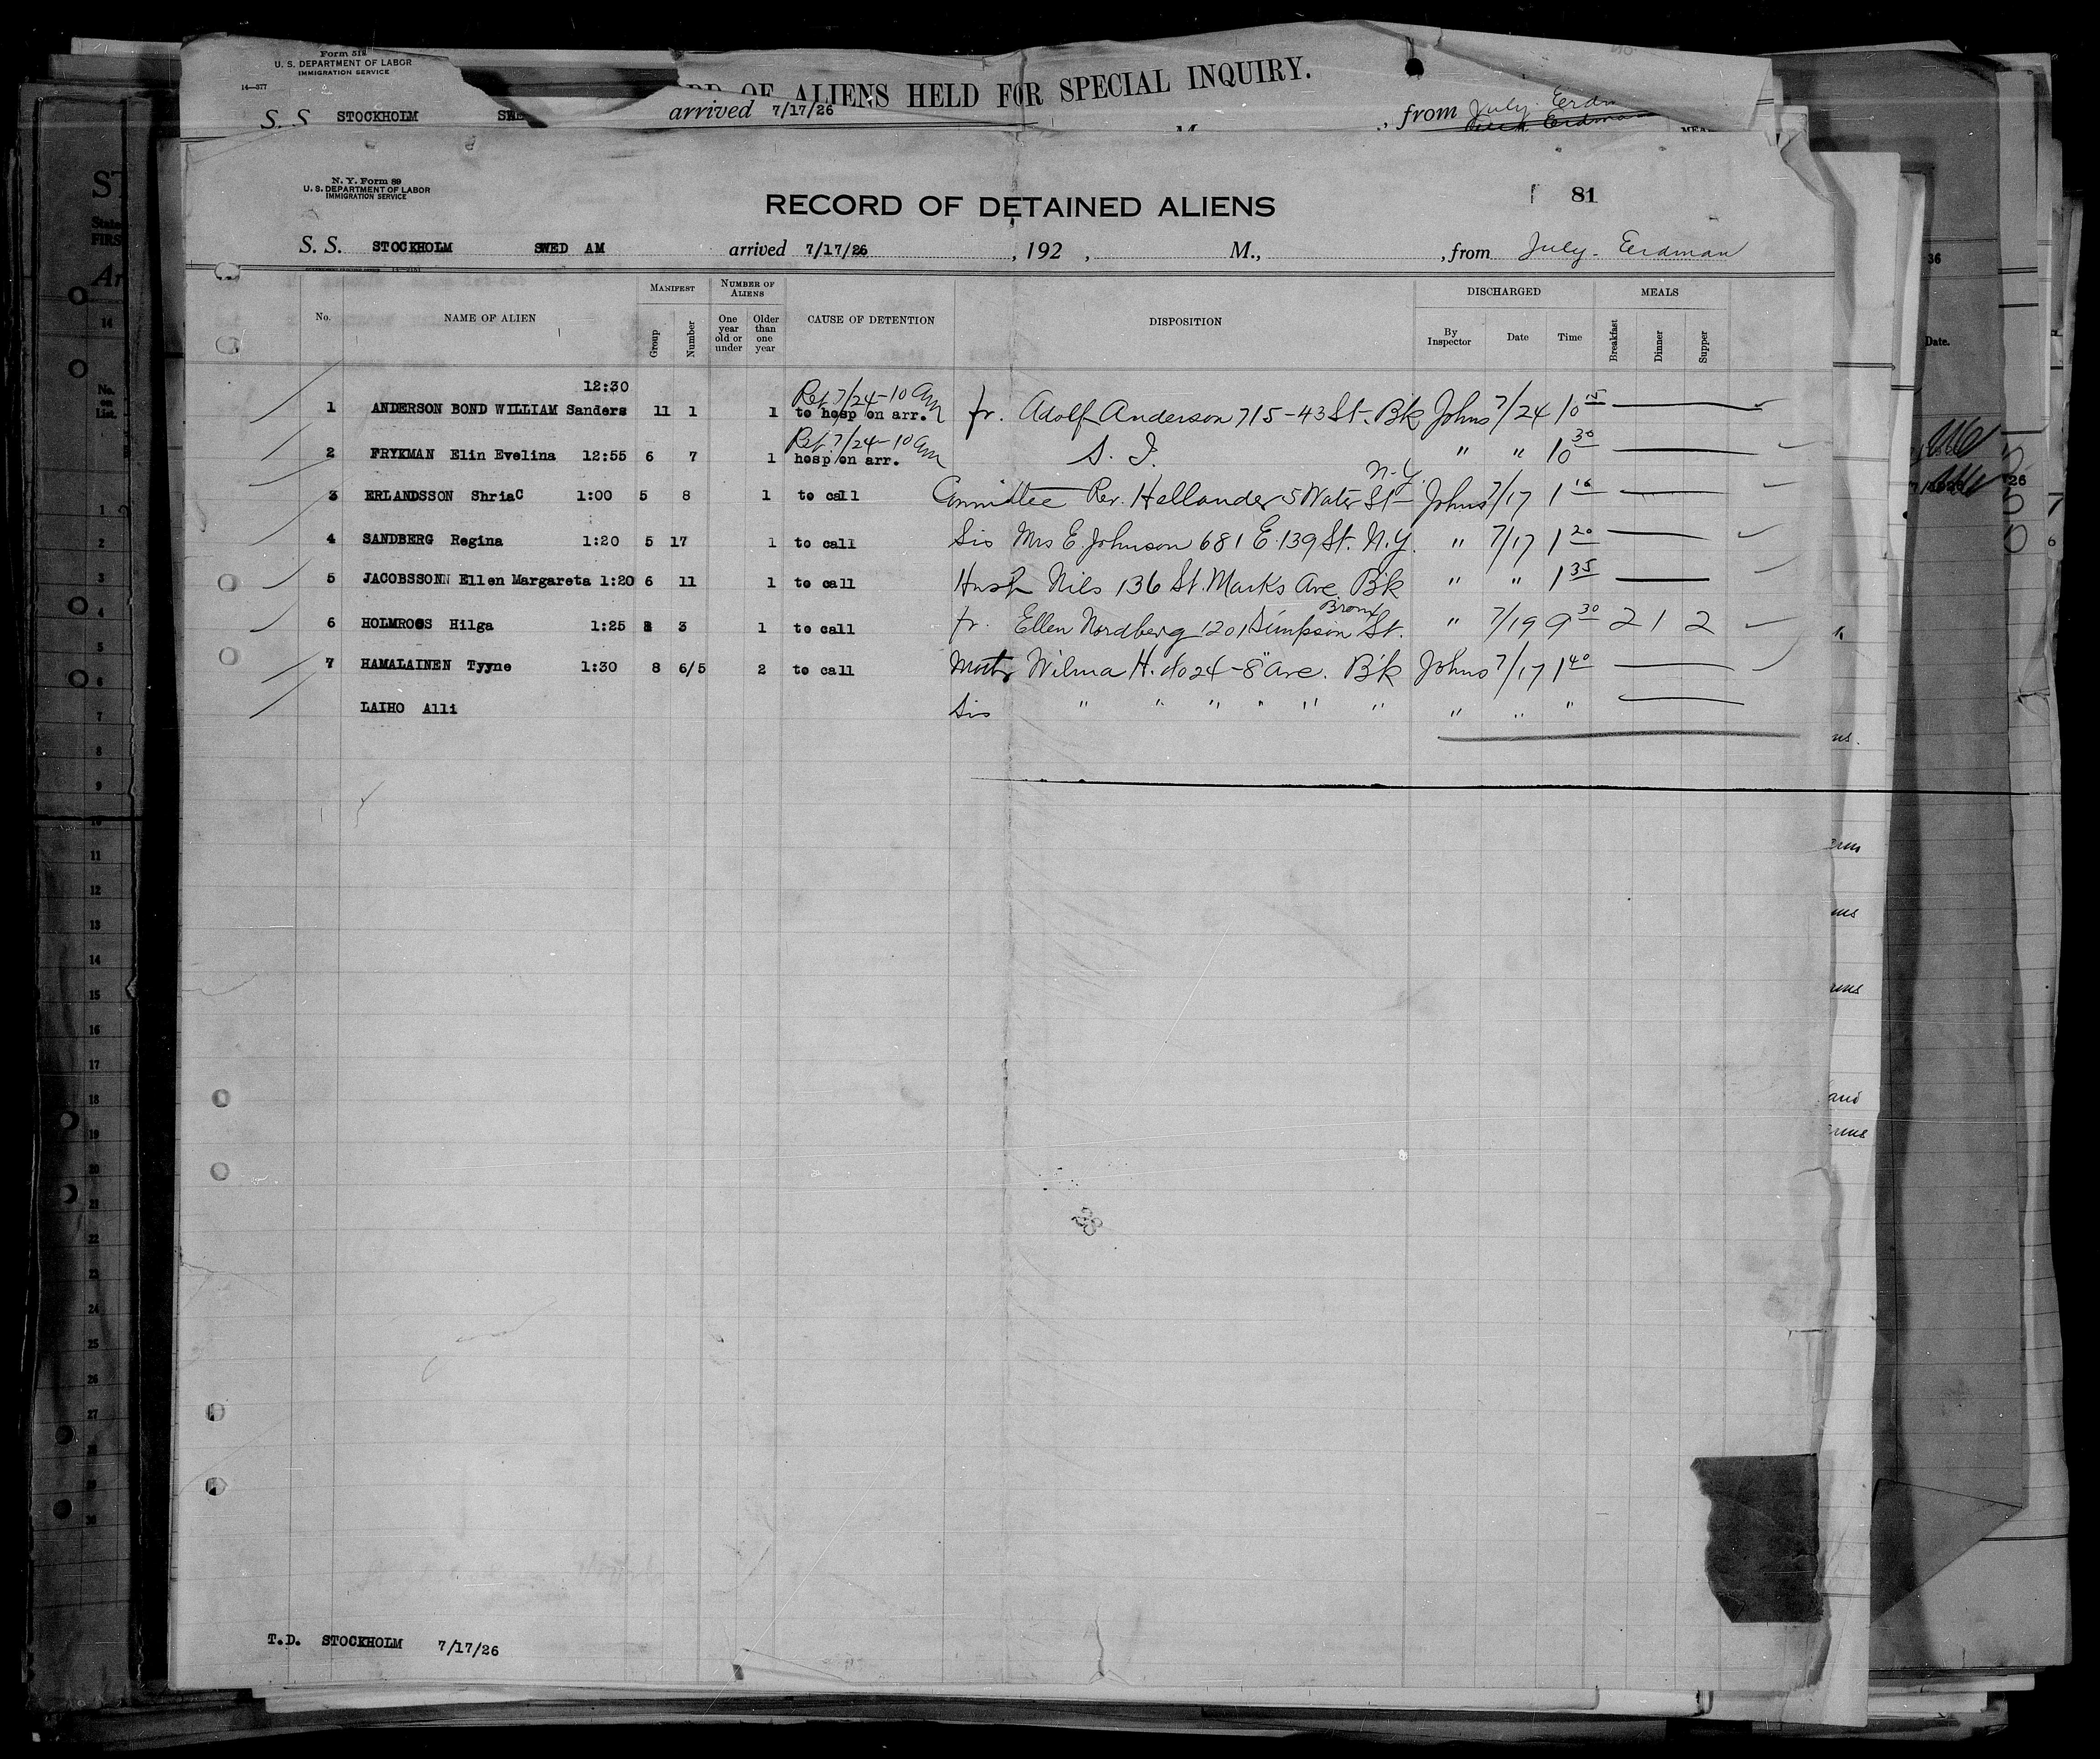 Form 518
U. S. DEPARTMENT OF LABOR
IMMIGRATION SERVICE
14—377
OF ALIENS HELD FOR SPECIAL INQUIRY.
S. S. STOCKHOLM arrived 7/17/26 , from July.
N. Y. Form 89
U. S. DEPARTMENT OF LABOR
IMMIGRATION SERVICE
RECORD OF DETAINED ALIENS
81
S. S. STOCKHOLM SWED AM arrived 7/17/26 , 192 , M., , from July. Eerdman
No. NAME OF ALIEN MANIFEST Group Number NUMBER OF ALIENS One year old or under Older than one year CAUSE OF DETENTION DISPOSITION DISCHARGED By Inspector Date Time MEALS Breakfast Dinner Supper
12:30 Ret 7/24-10 am
1 ANDERSON BOND WILLIAM Sanders 11 1 1 to hosp on arr. fr. Adolf Anderson 715-43 St. Bk Johns 7/24 10 15
Ret 7/24-10 am
2 FRYKMAN Elin Evelina 12:55 6 7 1 hosp on arr. S. I. " " 10 30
3 ERLANDSSON ShriaC 1:00 5 8 1 to call Committee Rev. Hellander 5 Water St N.Y. Johns 7/17 1 10
4 SANDBERG Regina 1:20 5 17 1 to call Sis Mrs E Johnson 681 E. 139 St. N.Y. " 7/17 1 20
5 JACOBSSONN Ellen Margareta 1:20 6 11 1 to call Husb Nils 136 St. Marks Ave. Bk " " 1 35
6 HOLMROOS Hilga 1:25 3 1 to call fr. Ellen Nordberg 1201 Simpson St. Bronx " 7/19 9 30 2 1 2
7 HAMALAINEN Tyyne 1:30 8 6/5 2 to call Moth Wilma H. 24-8" Ave. Bk Johns 7/17 1 40
LAIHO Alli Sis " " " " " " " " "
T.D. STOCKHOLM 7/17/26